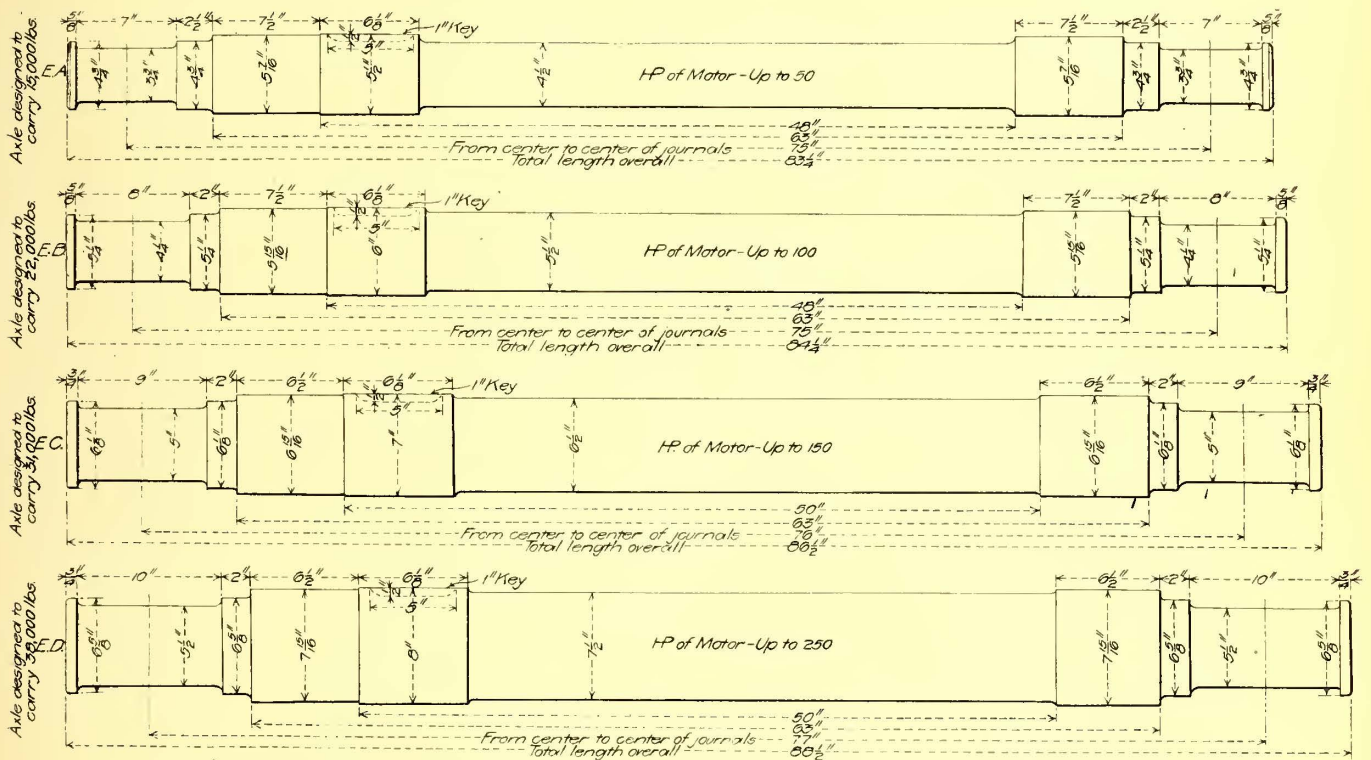 Axle designed to carry 15,000 lbs.
E.A.
5/8" 7" 2 1/2" 7 1/2" 6 1/8" 1" Key 7 1/2" 2 1/2" 7" 5/8"
1/2" 5"
4 3/4" 3 3/4" 4 3/4" 5 7/16" 5 1/2" 4 1/2" HP of Motor-Up to 50 5 7/16" 4 3/4" 3 3/4" 4 3/4"
48"
63"
From center to center of journals 75"
Total length overall 83 1/4"
Axle designed to carry 22,000 lbs.
E.B.
5/8" 8" 2" 7 1/2" 6 1/8" 1" Key 7 1/2" 2" 8" 5/8"
1/2" 5"
5 1/4" 4 1/4" 5 1/4" 5 15/16" 6" 5 1/2" HP of Motor-Up to 100 5 15/16" 5 1/4" 4 1/4" 5 1/4"
48"
63"
From center to center of journals 75"
Total length overall 84 1/4"
Axle designed to carry 31,000 lbs.
E.C.
3/4" 9" 2" 6 1/2" 6 1/8" 1" Key 6 1/2" 2" 9" 3/4"
1/2" 5"
6 1/8" 5" 6 1/8" 6 15/16" 7" 6 1/2" H.P. of Motor-Up to 150 6 15/16" 6 1/8" 5" 6 1/8"
50"
63"
From center to center of journals 76"
Total length overall 86 1/2"
Axle designed to carry 38,000 lbs.
E.D.
3/4" 10" 2" 6 1/2" 6 1/8" 1" Key 6 1/2" 2" 10" 3/4"
1/2" 5"
6 5/8" 5 1/2" 6 5/8" 7 15/16" 8" 7 1/2" HP of Motor-Up to 250 7 15/16" 6 5/8" 5 1/2" 6 5/8"
50"
63"
From center to center of journals 77"
Total length overall 88 1/2"